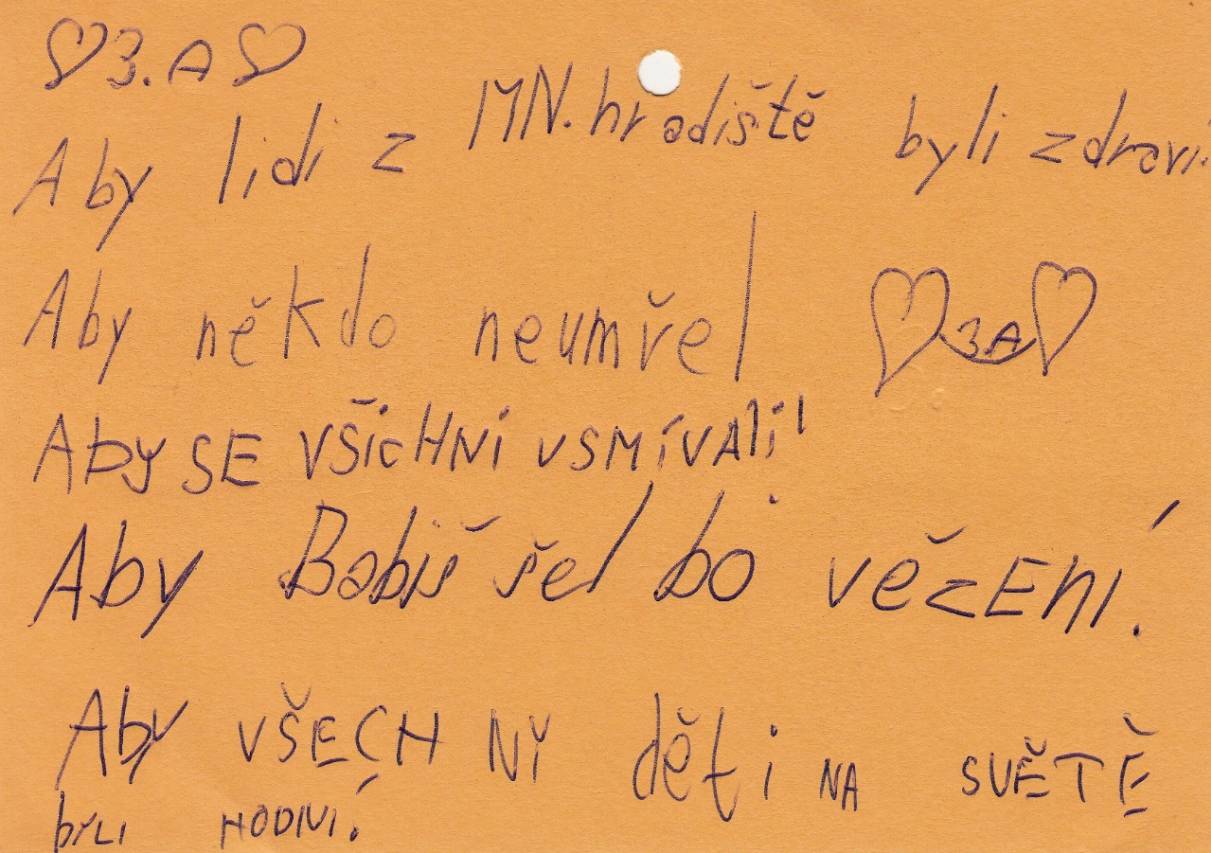 ♡3.A♡
Aby lidi z MN. hradiště byli zdraví.
Aby někdo neumřel ♡3A♡
Aby SE VŠiCHNi USMíVAli!
Aby Babiš šel bo vězEní.
Aby VŠECHNi děti NA SVĚTĚ
byLi HODNí.